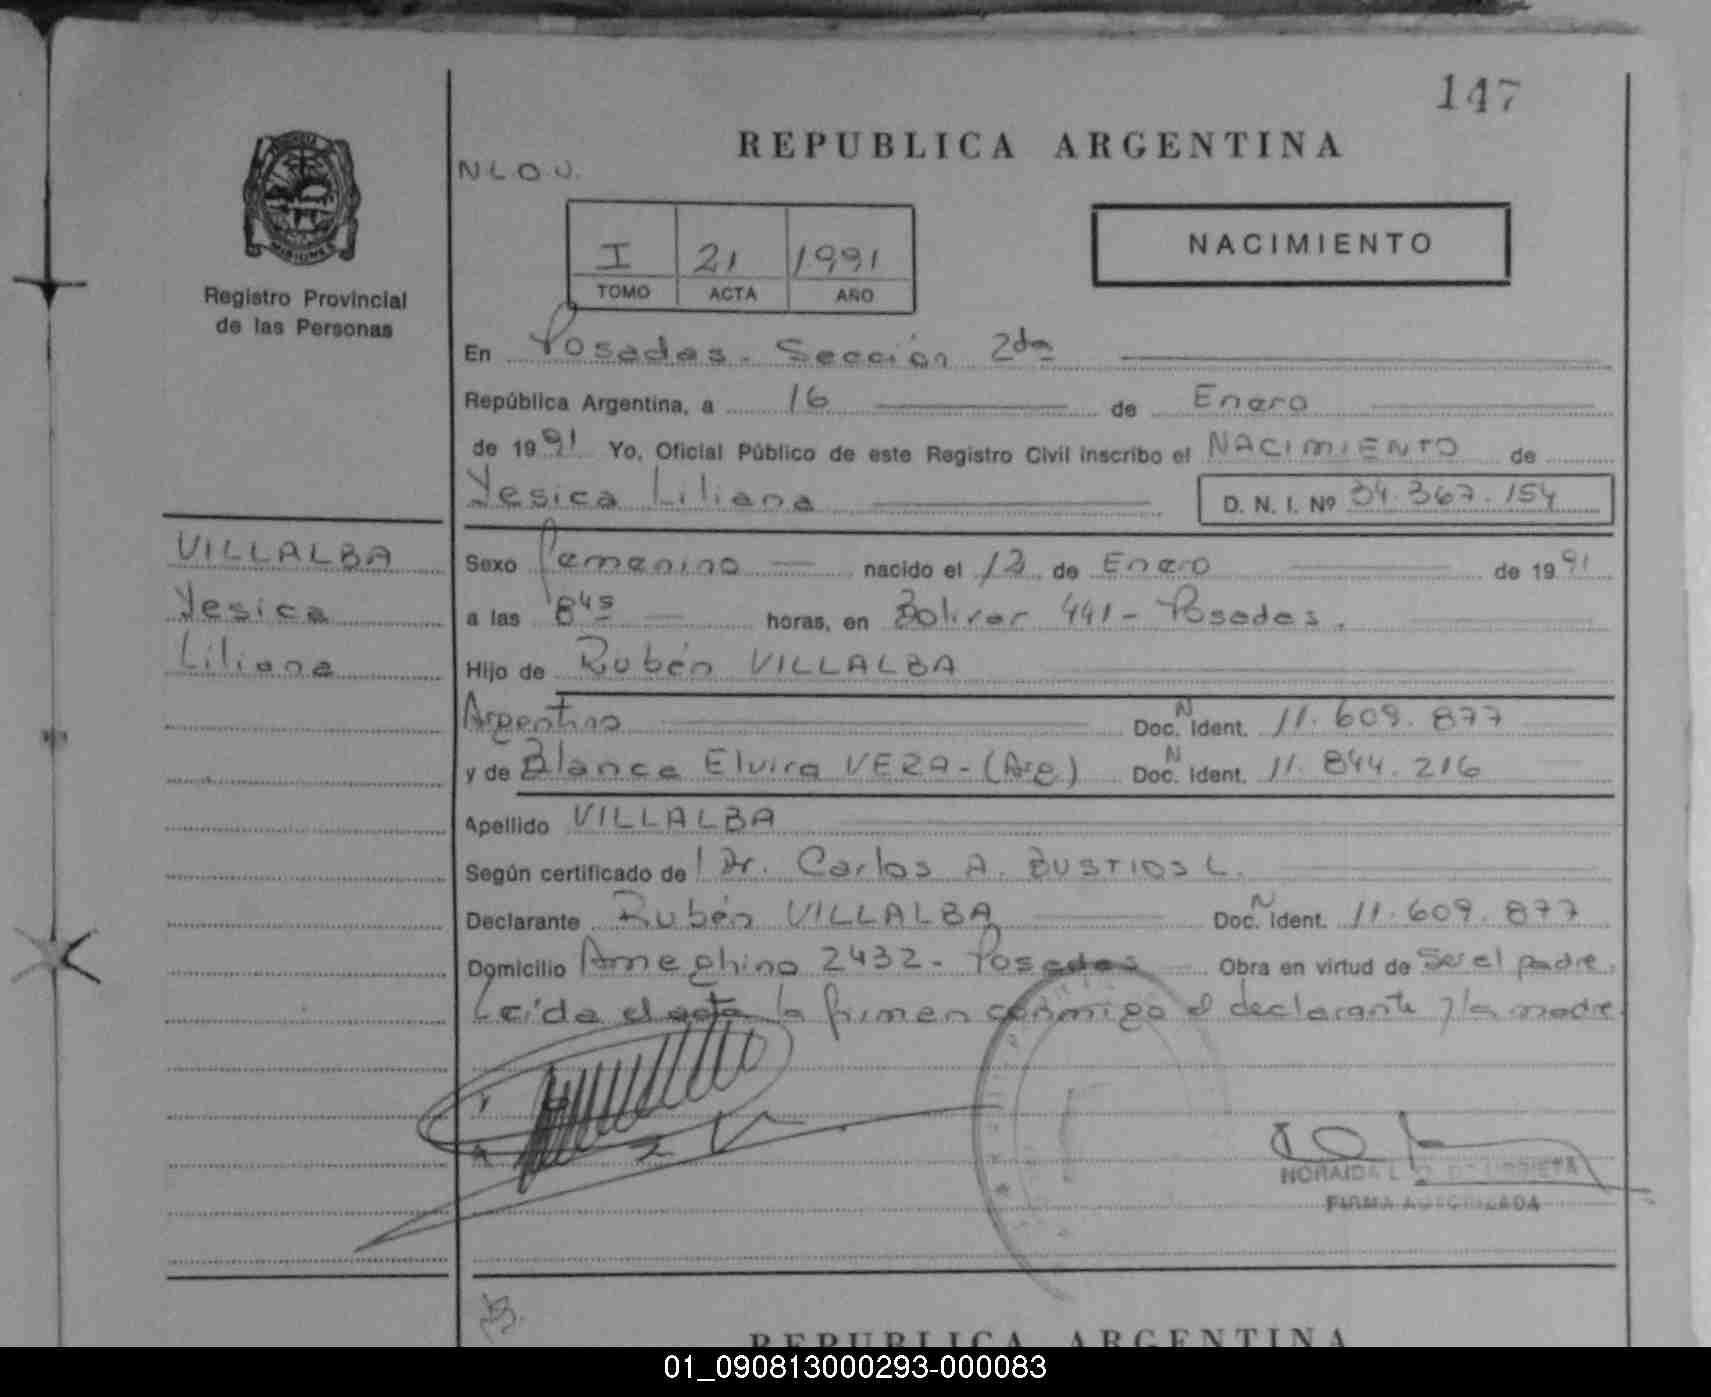 147
REPUBLICA ARGENTINA
N L O U.
I 21 1991
TOMO ACTA AÑO
NACIMIENTO
MISIONES
Registro Provincial
de las Personas
En Posadas. Sección 2da
República Argentina, a 16 de Enero
de 1991 Yo, Oficial Público de este Registro Civil inscribo el NACIMIENTO de
Yesica Liliana D. N. I. Nº 34.367.154
VILLALBA
Yesica
Liliana
Sexo Femenino nacido el 13 de Enero de 1991
a las 8 45 horas, en Bolivar 441 - Posadas.
Hijo de Rubén VILLALBA
Argentino Doc. N Ident. 11.609.877
y de Blanca Elvira VERA - (Arg) Doc. N Ident. 11.844.216
Apellido VILLALBA
Según certificado de Dr. Carlos A. BUSTIOS L.
Declarante Rubén VILLALBA Doc. N Ident. 11.609.877
Domicilio Ameghino 2432 - Posadas Obra en virtud de ser el padre.
Leída el acta la firman conmigo el declarante y la madre.
NORAIDA L.
FIRMA AUTORIZADA
REPUBLICA ARGENTINA
01_090813000293-000083